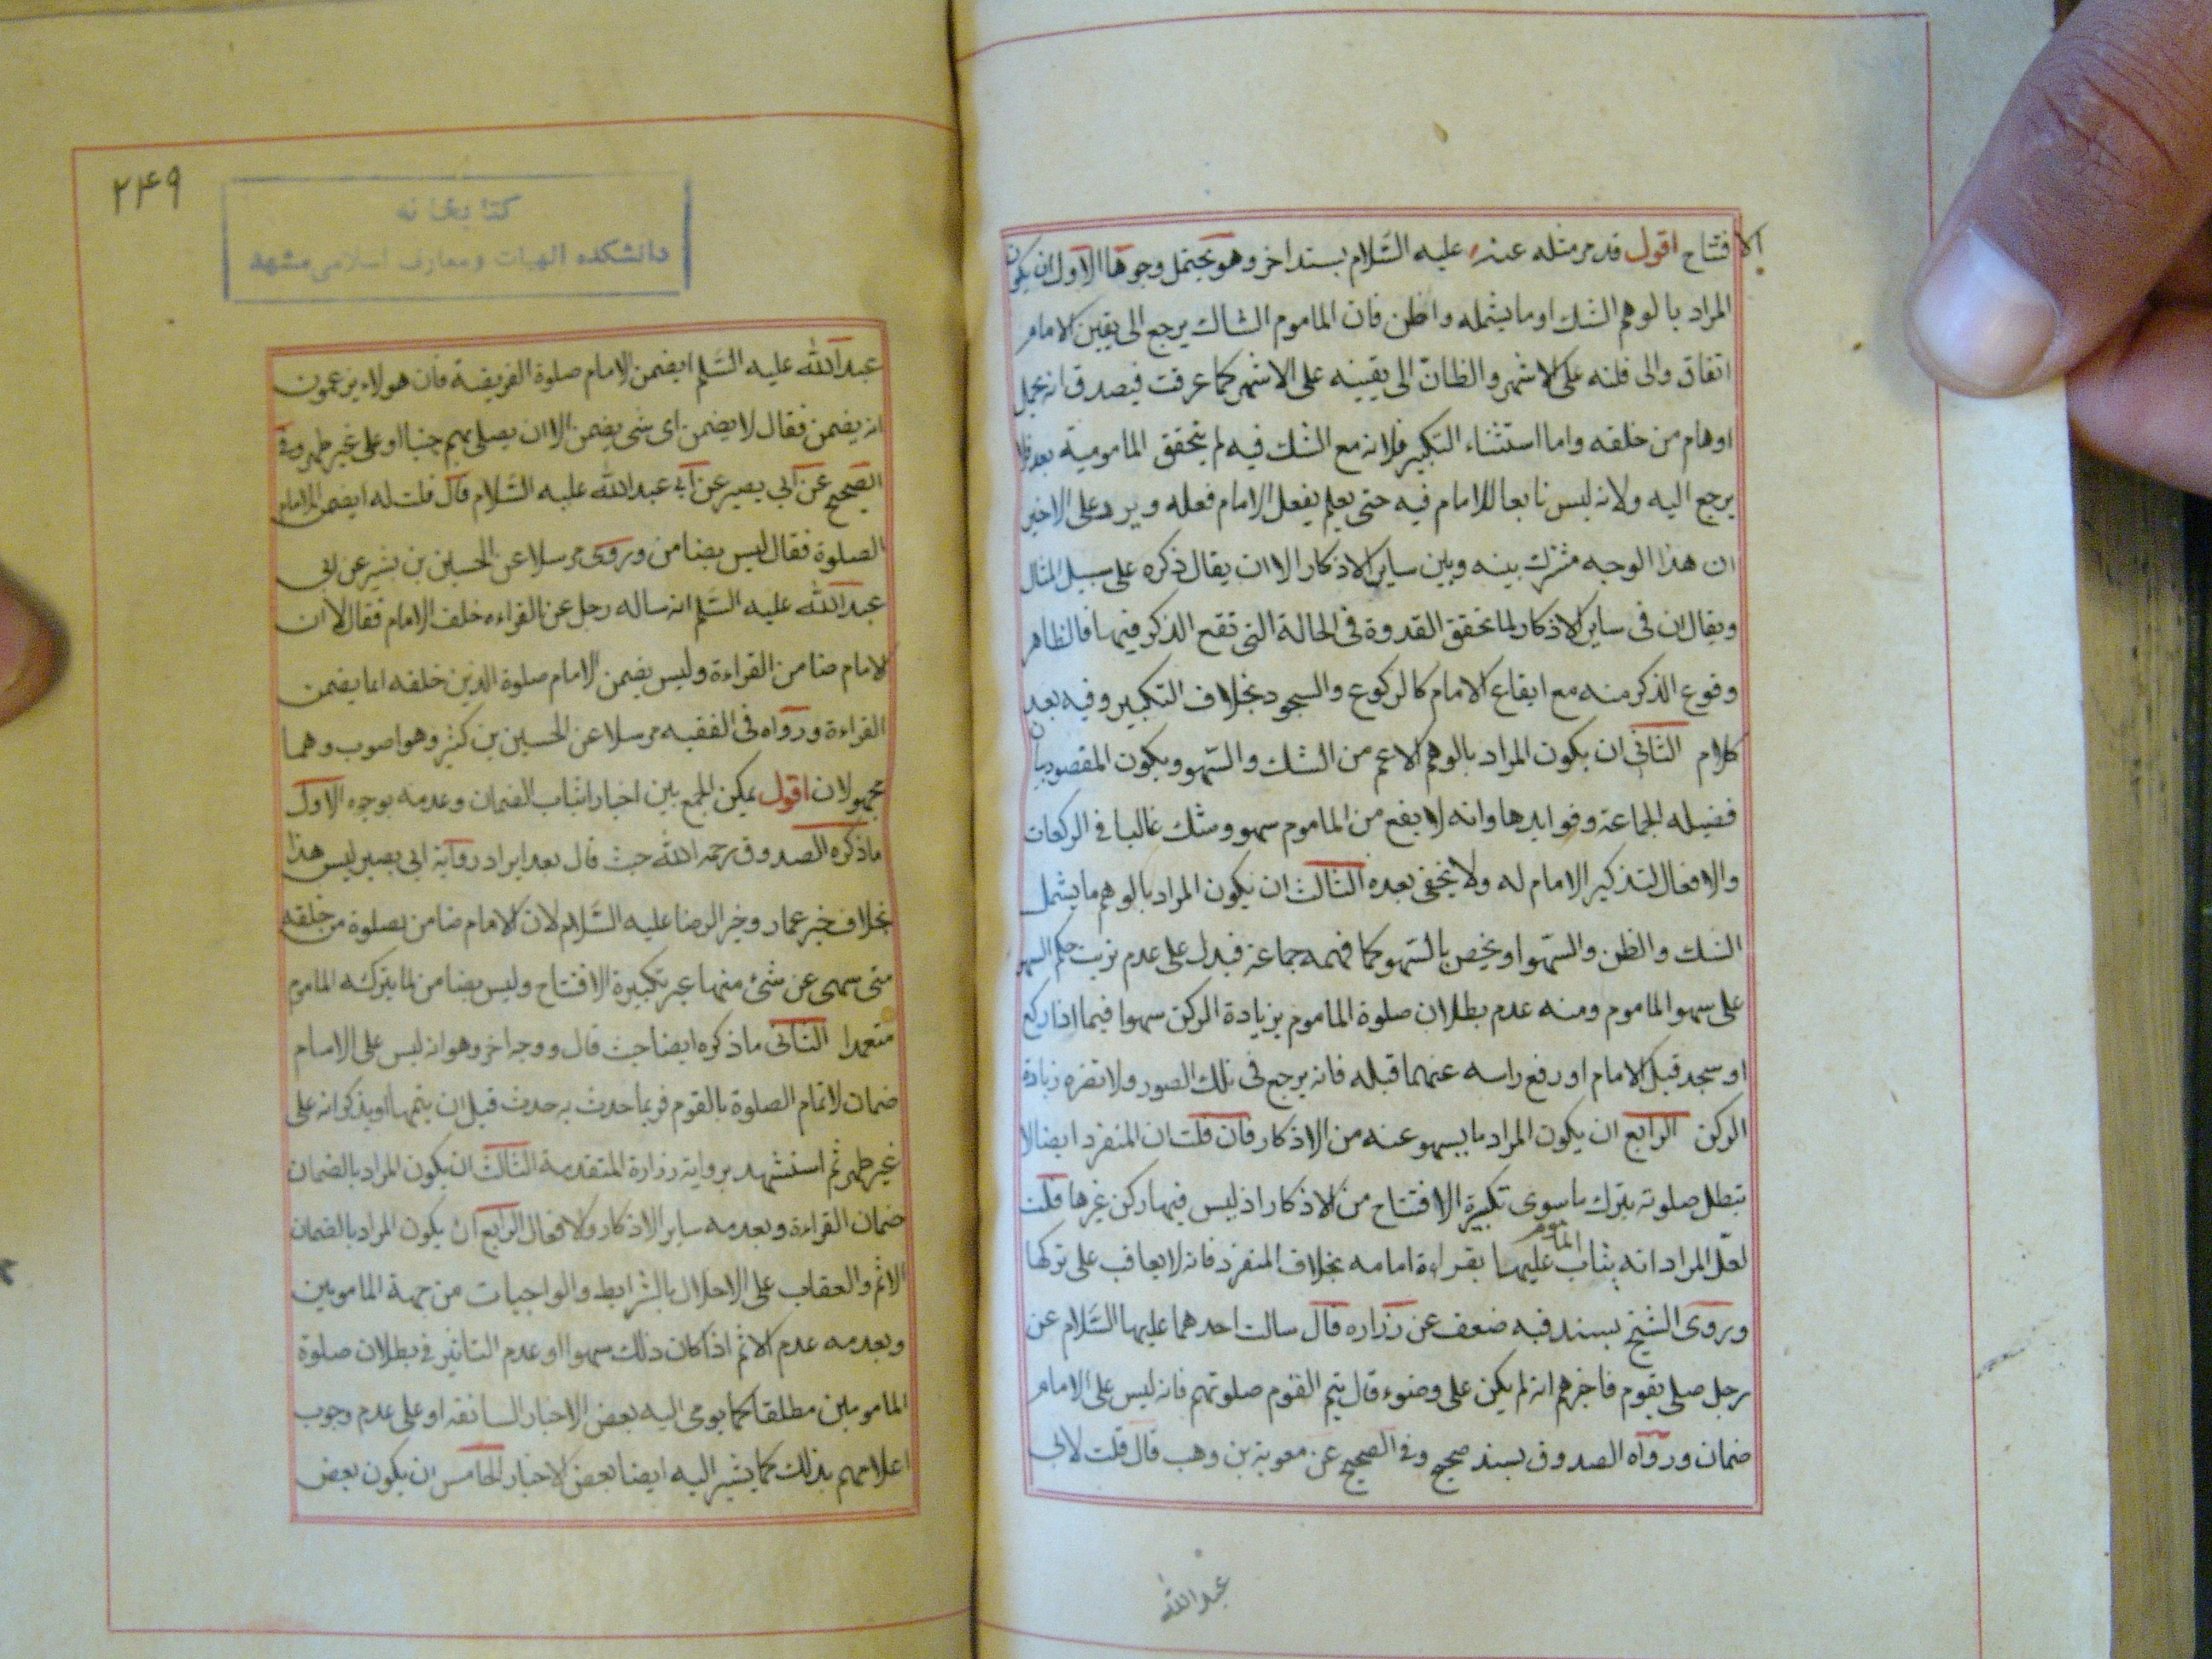 الافتتاح اقول قد مر مثله عنه عليه السَّلام بسند اخر وهو يحتمل وجوها الاول ان يكون
المراد بالوهم الشك او ما يشمله والظن فان الماموم الشاك يرجع الى يقين الامام
اتفاقا والى ظنه على الاشهر والظانّ الى يقينه على الاشهر كما عرفت فيصدق انه يحمل
اوهام من خلفه واما استثناء التكبير فلانه مع الشك فيه لم يتحقق المامومية بعد فلا
يرجع اليه ولانه ليس تابعا للامام فيه حتى يعلم بفعل الامام فعله ويرد على الاخير
ان هذا الوجه مشترك بينه وبين ساير الاذكار الا ان يقال ذكره على سبيل المثال
ويقال ان فى ساير الاذكار لما تحقق القدوة فى الحالة التى تقع الذكر فيها فالظاهر
وقوع الذكر منه مع ايقاع الامام كالركوع والسجود بخلاف التكبير وفيه بعد
كلام الثانى ان يكون المراد بالوهم الاعم من الشك والسّهو ويكون المقصود بيان
فضيله الجماعة وفوايدها وانه لا يقع من الماموم سهو وشك غالبا فى الركعات
والافعال لتذكير الامام له ولا يخفى بعده الثالث ان يكون المراد بالوهم ما يشمل
الشك والظن والسّهو او يخص بالسّهو كما فهمه جماعة فيدل على عدم ترتب حكم السهو
على سهو الماموم ومنه عدم بطلان صلوة الماموم بزيادة الركن سهوا فيما اذا ركع
او سجد قبل الامام او رفع راسه عنهما قبله فانه يرجع فى تلك الصور ولا تضره زيادة
الركن الرابع ان يكون المراد ما يسهو عنه من الاذكار فان قلت ان المنفرد ايضا لا
تبطل صلوته بترك ما سوى تكبيرة الافتتاح من الاذكار اذ ليس فيها ركن غيرها قلت
لعلّ المراد انه يثاب الماموم عليها بقراءة امامه بخلاف المنفرد فانه لا يعاقب على تركها
وروى الشيخ بسند فيه ضعف عن زراره قال سالت احدهما عليها السَّلام عن
رجل صلى بقوم فاخبرهم انه لم يكن على وضوء قال يتم القوم صلوتهم فانه ليس على الامام
ضمان ورواه الصدوق بسند صحيح وفى الصحيح عن معوية بن وهب قال قلت لابى
عبدالله
۲۴۹
كتابخانه
دانشكده الهيات ومعارف اسلامى مشهد
عبدالله عليه السَّلم ايضمن الامام صلوة الفريضة فان هولاء يزعمون
انه يضمن فقال لا يضمن اى شى يضمن الا ان يصلى بهم جنبا او على غير طهر وفى
الصحيح عن ابى بصير عن ابى عبدالله عليه السَّلام قال قلت له ايضمن الامام
الصلوة فقال ليس بضامن وروى مرسلا عن الحسين بن بشير عن ابى
عبدالله عليه السَّلم انه ساله رجل عن القراءه خلف الامام فقال لا ان
الامام ضامن القراءة وليس يضمن الامام صلوة الذين خلفه انما يضمن
القراءة ورواه فى الفقيه مرسلا عن الحسين بن كثير وهو اصوب وهما
مجهولان اقول يمكن الجمع بين اخبار اثبات الضمان وعدمه بوجوه الاول
ما ذكره الصدوق رحمه الله حيث قال بعد ايراد رواية ابى بصير ليس هذا
بخلاف خبر عمار وخبر الرضا عليه السَّلام لان الامام ضامن بصلوة من خلفه
متى سهى عن شئ منها غير تكبيرة الافتتاح وليس بضامن لما يتركه الماموم
متعمدا الثانى ما ذكره ايضا حيث قال ووجه اخر وهو انه ليس على الامام
ضمان لاتمام الصلوة بالقوم فربما حدث به حدث قبل ان يتمها او يذكر انه على
غير طهر ثم استشهد برواية زرارة المتقدمة الثالث ان يكون المراد بالضمان
ضمان القراءة وبعدمه ساير الاذكار والافعال الرابع ان يكون المراد بالضمان
الاثم والعقاب على الاخلال بالشرايط والواجبات من جهة المامومين
وبعدمه عدم الاثم اذا كان ذلك سهوا او عدم التاثير فى بطلان صلوة
المامومين مطلقا كما يومى اليه بعض الاخبار السابقه او على عدم وجوب
اعلامهم بذلك كما يشير اليه ايضا بعض الاخبار الخامس ان يكون بعض